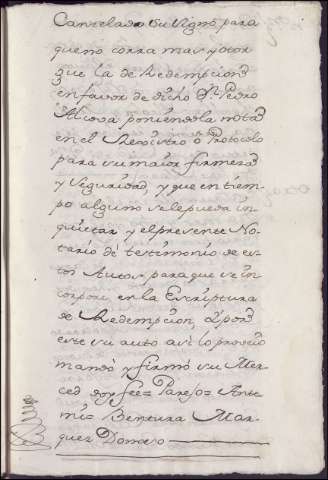 Cancelada su signo para
que no corra mas y otor
gue la de Redempcion
en favor de dicho Dn. Pedro
Alcosa poniendo la nota
en el Rexistro o Protocolo
para su maior firmeza
y seguridad, y que en tiem
po alguno se le pueda in
quietar y el presente No
tario dé testimonio de es
tos Autos para que se in
corpore, en la Escriptura
de Redempcion, Y por
este su auto asi lo proveio
mandó y firmó su Mer
ced doy fee= Parejo= Ante
mi= Bentura Mar
quez Donoso